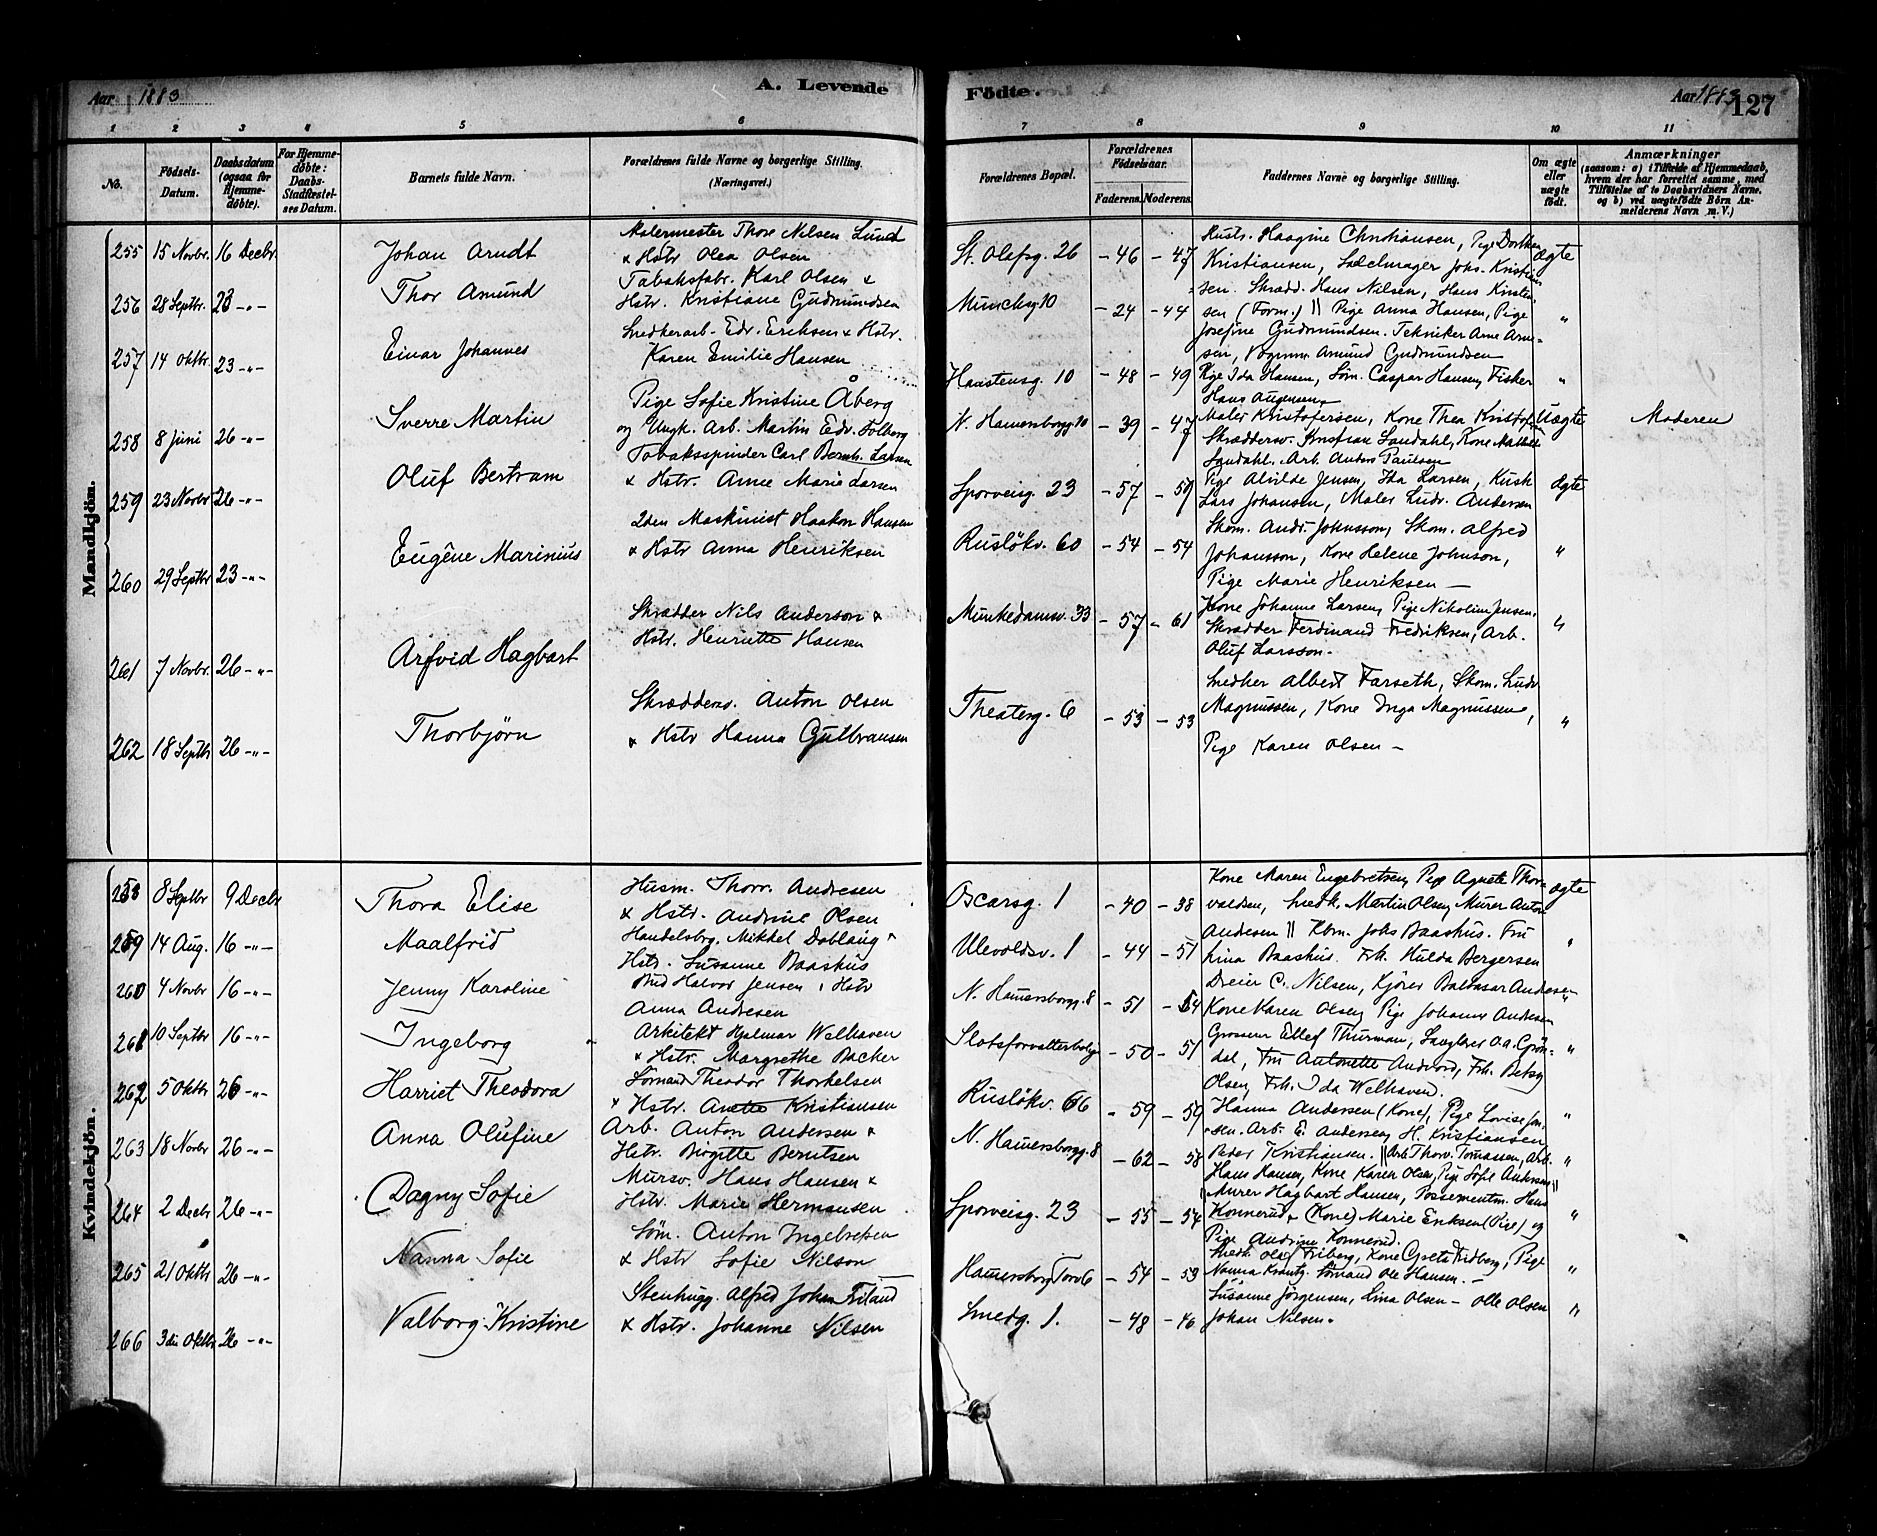 Aar 1883
A. Levende
Födte.
Aar 1883
127
1 2 3 4 5 6 7 8 9 10 11
No.
Födsels-Datum.
Daabsdatum (ogsaa for Hjemme-döbte).
For Hjemme-döbte: Daabs-Stadfæstel-ses Datum.
Barnets fulde Navn.
Forældrenes fulde Navne og borgerlige Stilling.
(Næringsvei.)
Forældrenes Bopæl.
Forældrenes Födselsaar.
Faderens. Moderens.
Faddernes Navne og borgerlige Stilling.
Om ægte eller uægte födt.
Anmærkninger
(saasom: a) i Tilfælde af Hjemmedaab,
hvem der har forrettet samme, med
Tilföielse af to Daabsvidners Navne,
og b) ved uægtefödte Börn An-
melderens Navn m. V.)
Mandkjön.
255 15 Novbr. 16 Decbr. Johan Arndt
Malermester Thore Nilsen Lund
& Hstr Olea Olsen
St. Olafsg. 26 - 46 - 47
Hustr. Haagine Christiansen, Pige Dorthea
Kristiansen, Sadelmager Johs. Kristian
sen. Skrædd. Hans Nilsen, Hans Kristen
ægte
256 28 Septbr. 23 -"- Thor Amund
Tabaksfabr. Karl Olsen &
Hstr. Kristiane Gudmundsen
Munchsg 10 - 24 - 44
sen (Form.) || Pige Anna Hansen, Pige
Josefine Gudmundsen. Tekniker Arne Arne-
sen, Vognm. Amund Gudmundsen
"
257 14 Oktbr 23 -"- Einar Johannes
Snedkerarb. Edv. Eriksen & Hstr.
Karen Emilie Hansen
Haastensg. 10 - 48 - 49
Pige Ida Hansen, Söm. Caspar Hansen, Fisker
Hans Augensen
"
258 8 Juni 26 -"- Sverre Martin
Pige Sofie Kristine Åberg
og Ungk. Arb. Martin Edv. Solberg
N. Hamersborgg. 10 - 39 - 47
Maler Kristofersen, Kone Thea Kristofersen
Skræddersv. Kristian Sandahl, Kone Mathilde
Sandahl. Arb. Anders Paulsen
Uægte
Moderen
259 23 Novbr 26 -"- Oluf Bertram
Tobaksspinder Carl Bernh. Larsen
& Hstr. Anne Marie Larsen
Sporveisg. 23 - 57 - 59
Pige Alvilde Jensen, Ida Larsen, Kusk
Lars Johansen, Maler Ludv. Andersen
ægte
260 29 Septbr 23 -"- Eugêne Marinius
2den Maskinist Haakon Hansen
& Hstr Anna Henriksen
Ruslökv. 60 - 54 - 54
Skom. Andr. Johnsson, Skom. Alfred
Johansson, Kone Helene Johnson,
Pige Marie Henriksen —
"
261 7 Novbr. 26 -"- Arfvid Hagbart
Skrædder Nils Anderson &
Hstr. Henriette Hansen
Munkedamsv. 33 - 57 - 61
Kone Johanne Larsen, Pige Nikoline Jensen,
Skrædder Ferdinand Fredriksen, Arb.
Oluf Larsson -
"
262 18 Septbr 26 -"- Thorbjörn
Skræddersv. Anton Olsen
& Hstr Hanna Gulbransen
Theaterg. 6 - 53 - 53
Snedker Albert Farseth, Skom. Ludv
Magnussen, Kone Inga Magnussen,
Pige Karen Olsen -
"
Kvindekjön.
258 8 Septbr 9 Decbr Thora Elise
Husm. Thorv. Andresen
& Hstr. Andrine Olsen
Oscarsg. 1 - 40 - 38
Kone Maren Engebretsen, Pige Agnete Thor-
valdsen, Snedk. Martin Olsen, Murer Anton
ægte
259 14 Aug. 16 -"- Maalfrid
Handelsbrg. Mikkel Doblaug &
Hstr. Susanne Baashus
Ulevoldsv. 1 - 44 - 51
Andresen || Kbm. Johs Baashus. Fru
Lina Baashus. Frk. Hulda Bergersen
"
260 4 Novbr 16 -"- Jenny Karoline
Bud Halvor Jensen & Hstr
Anna Andresen
N. Hamersborgg. 8 - 51 - 54
Dreier C. Nilsen, Kjörer Baltasar Andresen
Kone Karen Olsen, Pige Johanne Andresen
"
261 10 Septbr 16 -"- Ingeborg
Arkitekt Hjalmar Welhaven
& Hstr. Margrethe Backer
Slotsforvalterbolig - 50 - 51
Grosserer Ellef Thurman, Sanglærer O.A. Grön-
dal, Fru Antonette Andvord, Frk. Betsy
Olsen, Frk. Ida Welhaven.
"
262 5 Oktbr 26 -"- Harriet Theodora
Sömand Theodor Thorkelsen
& Hstr. Anette Kristiansen
Ruslökv. 66 - 59 - 59
Hanna Andersen (Kone), Pige Lovise Jen-
sen. Arb. E. Andersen, H. Kristiansen
"
263 18 Novbr 26 -"- Anna Olufine
Arb. Anton Andersen &
Hstr. Birgitte Berntsen
N. Hamersborgg. 8 - 62 - 58
Peder Kristiansen. || Arb. Thorv. Tomassen, Arb.
Hans Hansen, Kone Karen Olsen, Pige Sofie Andersen ||
"
264 2 Decbr 26 -"- Dagny Sofie
Mursv. Hans Hansen &
Hstr. Marie Hermansen
Sporveisg. 23 - 55 - 54
Murer Hagbart Hansen, Possementm. Hans
Konnerud, (Kone) Marie Eriksen (Pige) og
Pige Andrine Konnerud.
"
265 21 Oktbr 26 -"- Nanna Sofie
Söm. Anton Ingebretsen
& Hstr Sofie Nilson
Hamersborg Torv 6 - 54 - 53
Snedk. Olaf Friberg, Kone Greta Fridberg, Pige
Nanna Krantz. Sömand Ole Hansen. -
"
266 3die Oktbr 26 -"- Valborg Kristine
Stenhugg. Alfred Johan Friland
& Hstr. Johanne Nilsen
Smedg. 1. - 48 - 46
Susanne Jörgensen, Lina Olsen - Olle Olsen
Johan Nilsen.
"